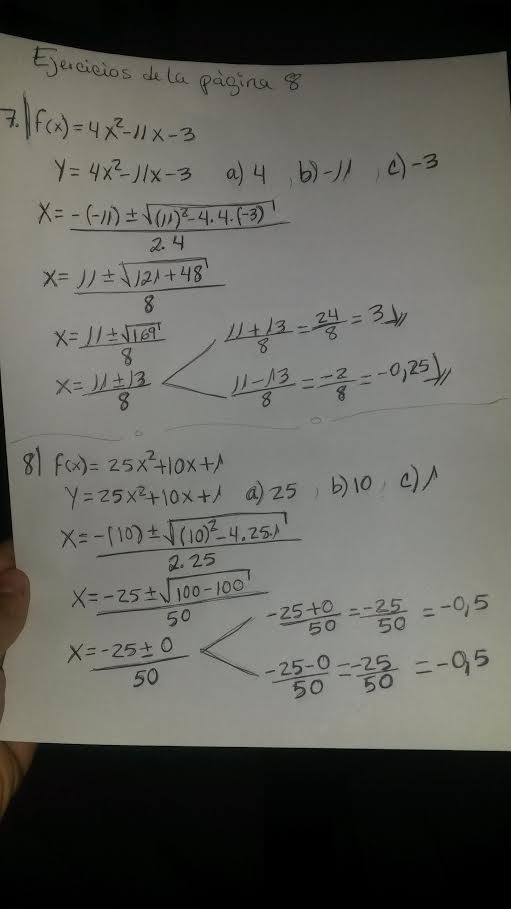 Ejercicios de la página 8
7.| f(x)=4x²-11x-3
Y=4x²-11x-3 a) 4 , b)-11 , c)-3
X=-(-11)±√(11)²-4.4.(-3)
2.4
X=11±√121+48
8
X=11±√169
8
11+13/8=24/8=3
X=11±13
8
11-13/8=-2/8=-0,25
8| f(x)=25x²+10x+1
Y=25x²+10x+1 a) 25 , b) 10 , c) 1
X=-(10)±√(10)²-4.25.1
2.25
X=-25±√100-100
50
-25+0/50=-25/50=-0,5
X=-25±0
50
-25-0/50=-25/50=-0,5